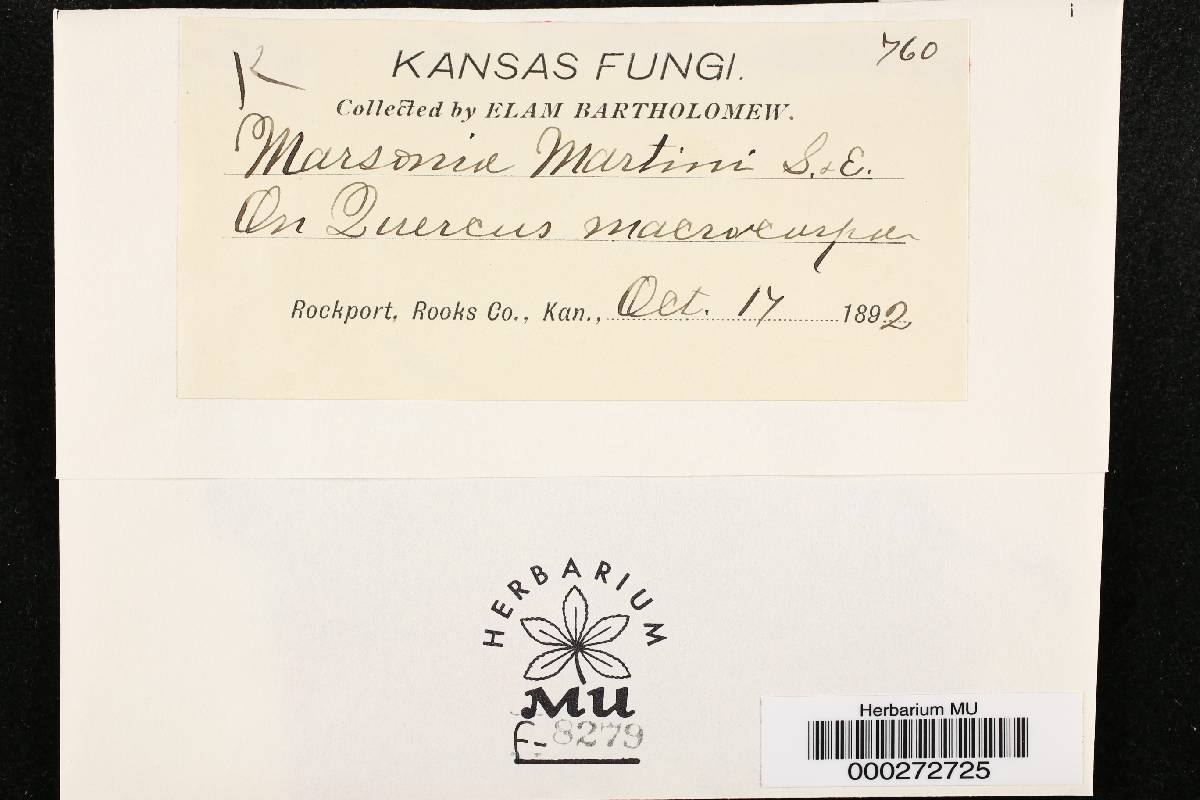 K
KANSAS FUNGI.
760
Collected by ELAM BARTHOLOMEW.
Marsonia Martini S. & E.
On Quercus macrocarpa
Rockport, Rooks Co., Kan., Oct. 17 1892
HERBARIUM
MU
F. 8279
Herbarium MU
000272725